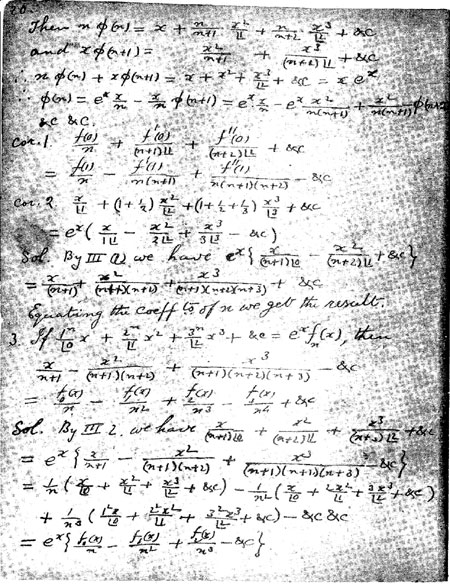 Then n φ(n) = x + n/(n+1) x²/⌊1 + n/(n+2) x³/⌊2 + &c
and x φ(n+1) = x²/(n+1) + x³/((n+2)⌊1) + &c
∴ n φ(n) + x φ(n+1) = x + x² + x³/⌊2 + &c = x eˣ
∴ φ(n) = eˣ x/n − x/n φ(n+1) = eˣ x/n − eˣ x²/(n(n+1)) + x²/(n(n+1)) φ(n+2)
&c &c.
Cor. 1. f(0)/n + f'(0)/((n+1)⌊1) + f''(0)/((n+2)⌊2) + &c
= f(1)/n − f'(1)/(n(n+1)) + f''(1)/(n(n+1)(n+2)) − &c
Cor. 2. x/⌊1 + (1+½) x²/⌊2 + (1+½+⅓) x³/⌊3 + &c
= eˣ (x/(1⌊1) − x²/(2⌊2) + x³/(3⌊3) − &c)
Sol. By III (2) we have eˣ {x/((n+1)⌊0) − x²/((n+2)⌊1) + &c}
= x/(n+1) + x²/((n+1)(n+2)) + x³/((n+1)(n+2)(n+3)) + &c
Equating the coeff^ts of n we get the result.
3. If 1ⁿ/⌊0 x + 2ⁿ/⌊1 x² + 3ⁿ/⌊2 x³ + &c = eˣ fₙ(x), then
x/(n+1) − x²/((n+1)(n+2)) + x³/((n+1)(n+2)(n+3)) − &c
= f₀(x)/n − f₁(x)/n² + f₂(x)/n³ − f₃(x)/n⁴ + &c
Sol. By III 2. we have x/((n+1)⌊0) + x²/((n+2)⌊1) + x³/((n+3)⌊2) + &c
= eˣ {x/(n+1) − x²/((n+1)(n+2)) + x³/((n+1)(n+2)(n+3)) − &c}
= 1/n (x/⌊0 + x²/⌊1 + x³/⌊2 + &c) − 1/n² (x/⌊0 + 2x²/⌊1 + 3x³/⌊2 + &c)
+ 1/n³ (1²x/⌊0 + 2²x²/⌊1 + 3²x³/⌊2 + &c) − &c &c
= eˣ {f₀(x)/n − f₁(x)/n² + f₂(x)/n³ − &c}